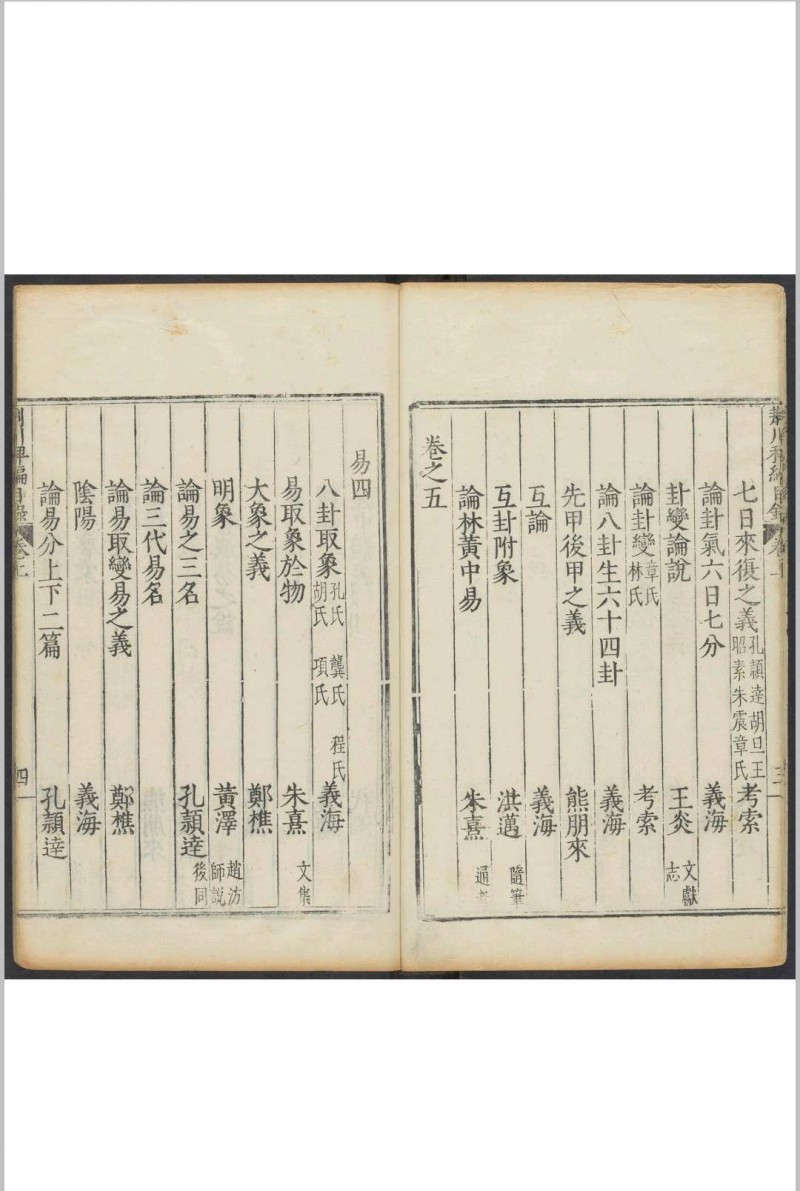 七日來復之義 孔穎達胡旦王昭素朱震章氏 考索
論卦氣六日七分 義海
卦變論說 王炎 文獻志
論卦變 章氏林氏 考索
論八卦生六十四卦 義海
先甲後甲之義 熊朋來
互論 義海
互卦附象 洪邁 隨筆
論林黃中易 朱熹
卷之五
易四
八卦取象 孔氏 龔氏 程氏 胡氏 項氏 義海
易取象於物 朱熹 文集
大象之義 鄭樵
明象 黃澤 趙汸師說
論易之三名 孔穎達 後同
論三代易名
論易取變易之義 鄭樵
陰陽 義海
論易分上下二篇 孔穎達
四